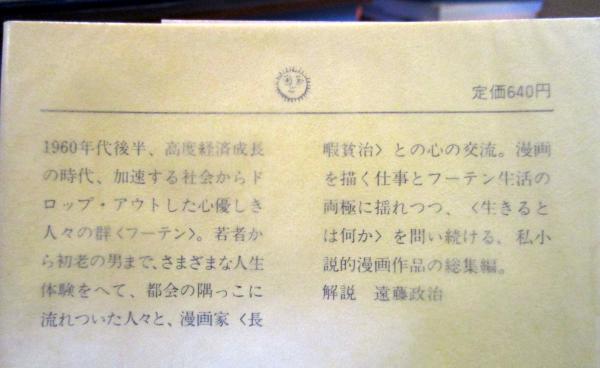 定価640円
1960年代後半、高度経済成長
の時代、加速する社会からド
ロップ・アウトした心優しき
人々の群〈フーテン〉。若者か
ら初老の男まで、さまざまな人生
体験をへて、都会の隅っこに
流れついた人々と、漫画家〈長
暇貧治〉との心の交流。漫画
を描く仕事とフーテン生活の
両極に揺れつつ、〈生きると
は何か〉を問い続ける、私小
説的漫画作品の総集編。
解説　遠藤政治